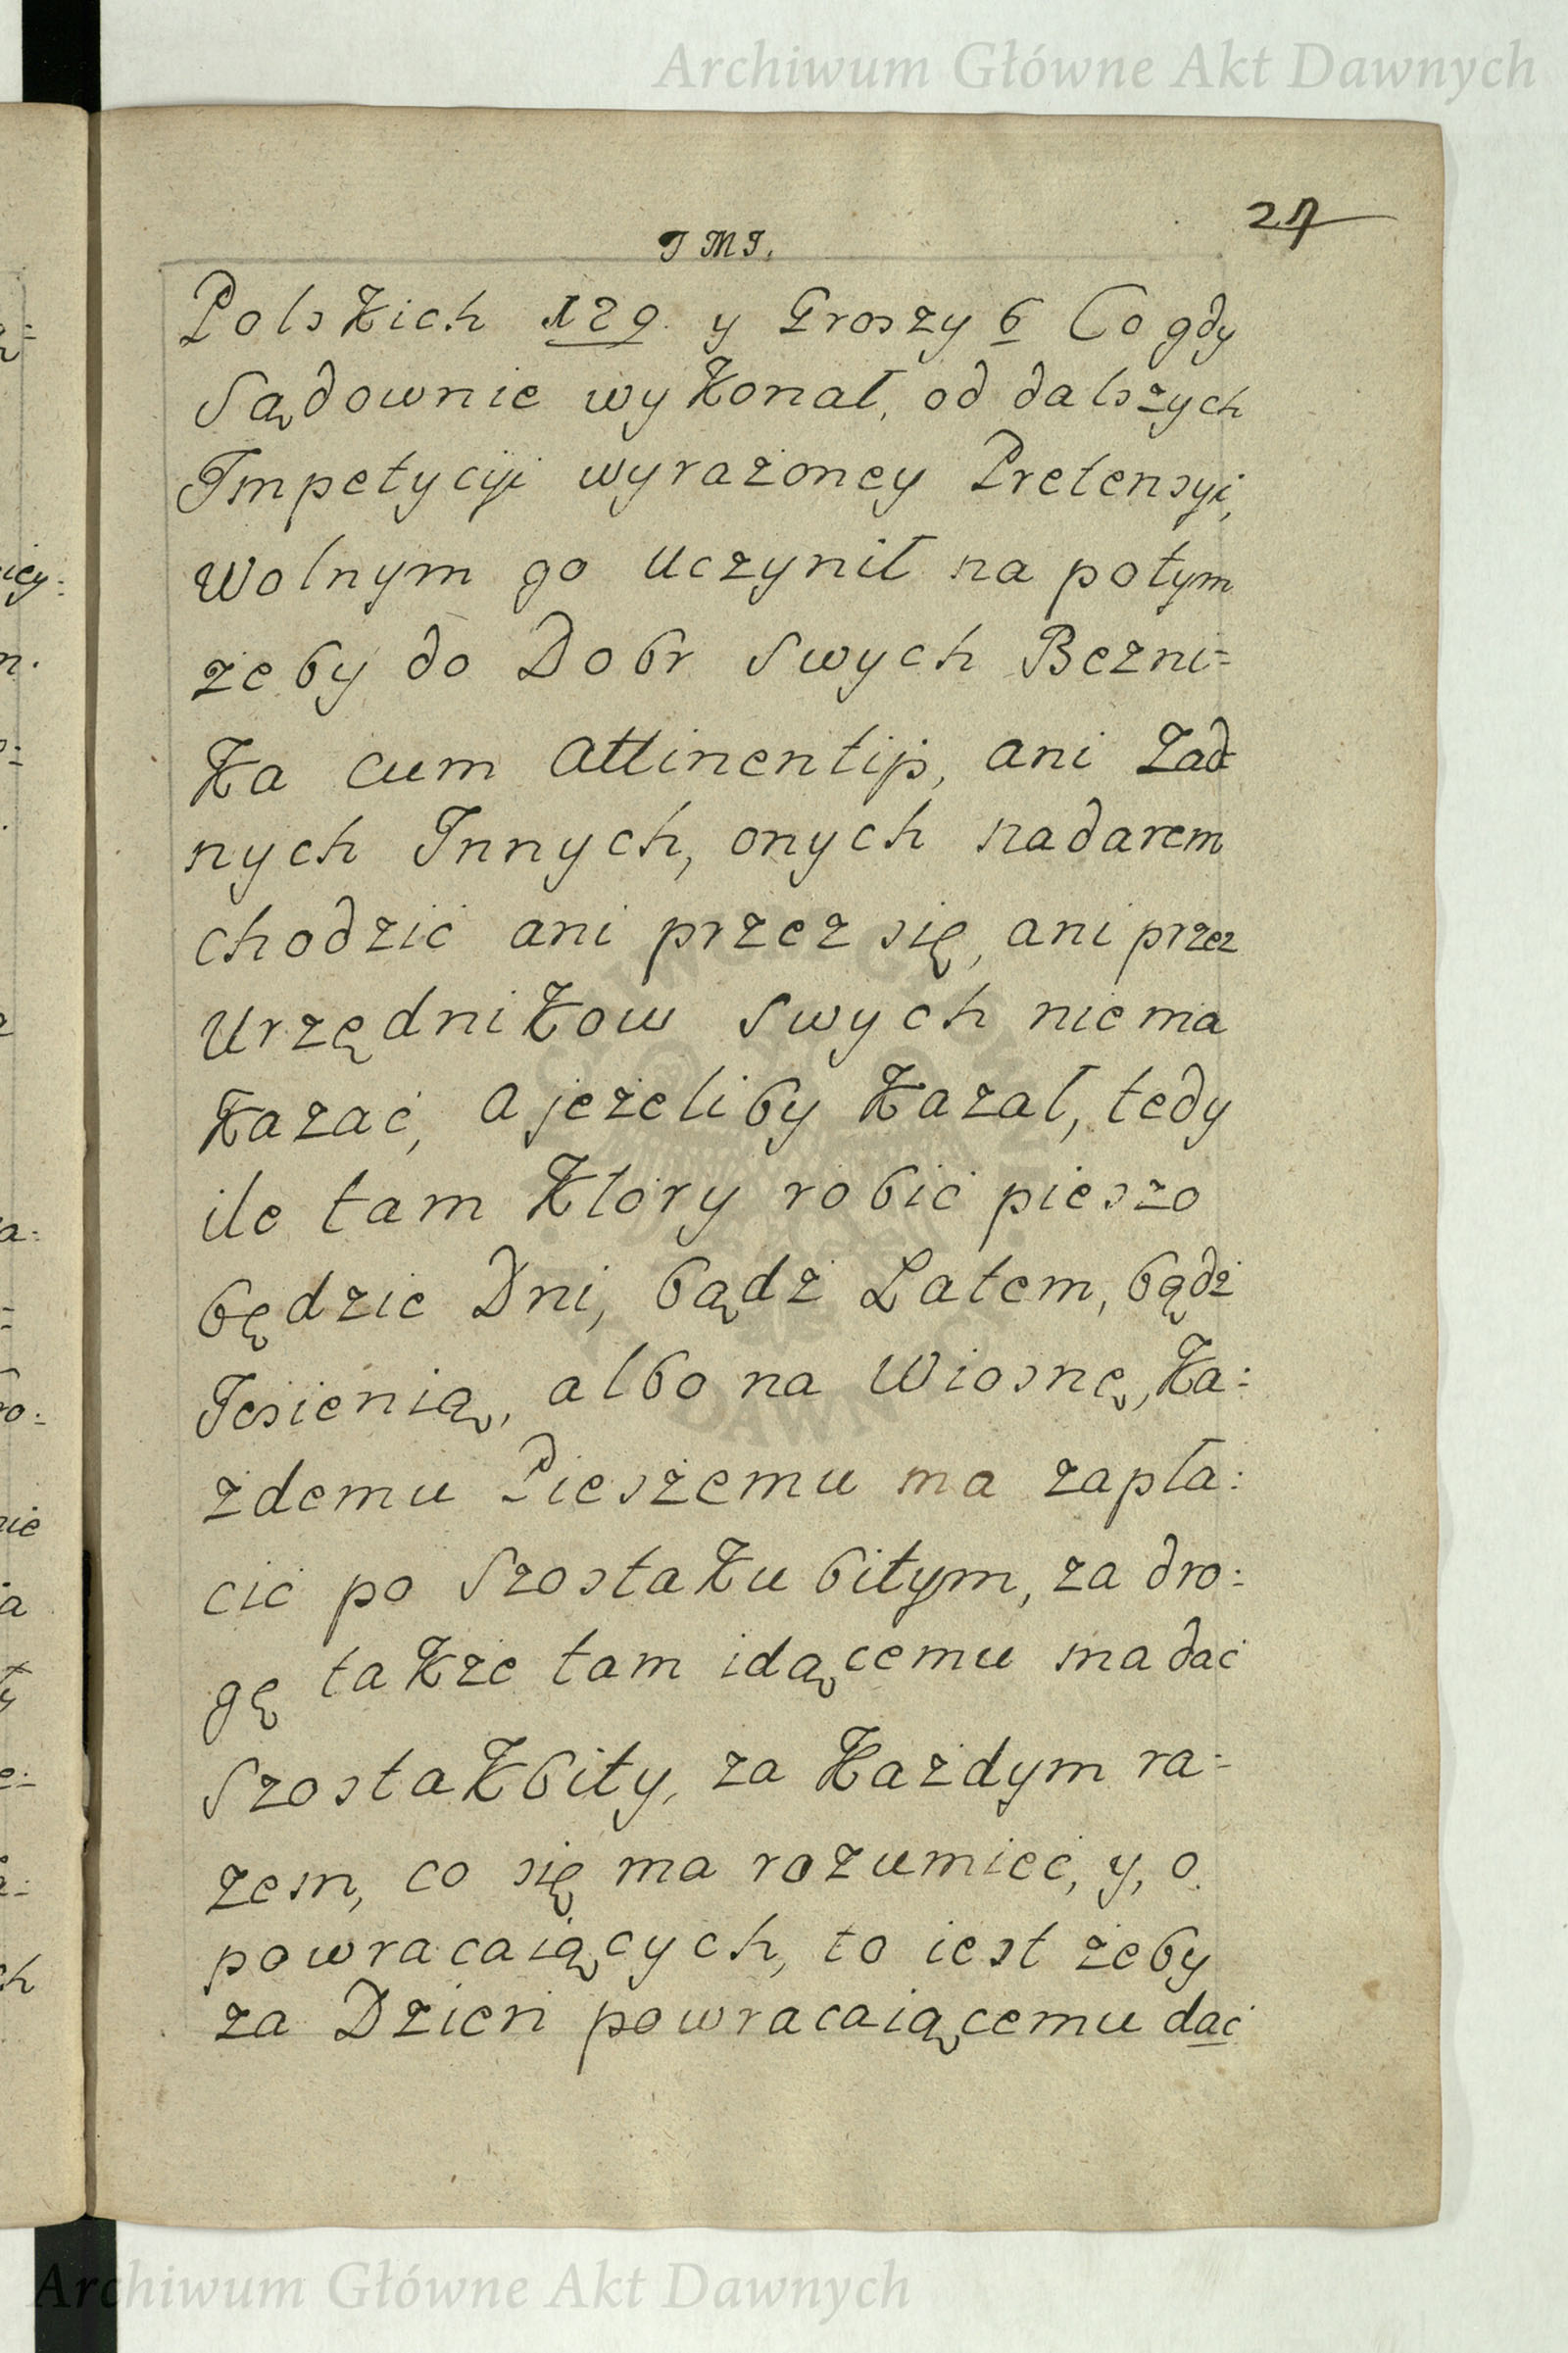 Archiwum Główne Akt Dawnych
27
J M J.
Polskich 129. y Groszy 6 Co gdy
Sądownie wykonał, od dalszych
Impetycyji wyrażoney Pretensyi,
Wolnym go uczynił na potym
żeby do Dobr Swych Bezni=
ka cum attinentijs, ani Żad=
nych Innych, onych nadarem
chodzić ani przez się, ani przez
Urzędnikow Swych niema
kazać, a jeżeliby kazał, tedy
ile tam ktory robić pieszo
będzie Dni, bądź Latem, bądź
Jesienią, albo na Wiosnę, ka:
żdemu Pieszemu ma zapła:
cić po Szostaku bitym, za dro:
gę także tam idącemu ma dać
Szostak bity, za każdym ra=
zem, co się ma rozumieć, y, o
powracaiących, to iest żeby
za Dzień powracaiącemu dać
Archiwum Główne Akt Dawnych